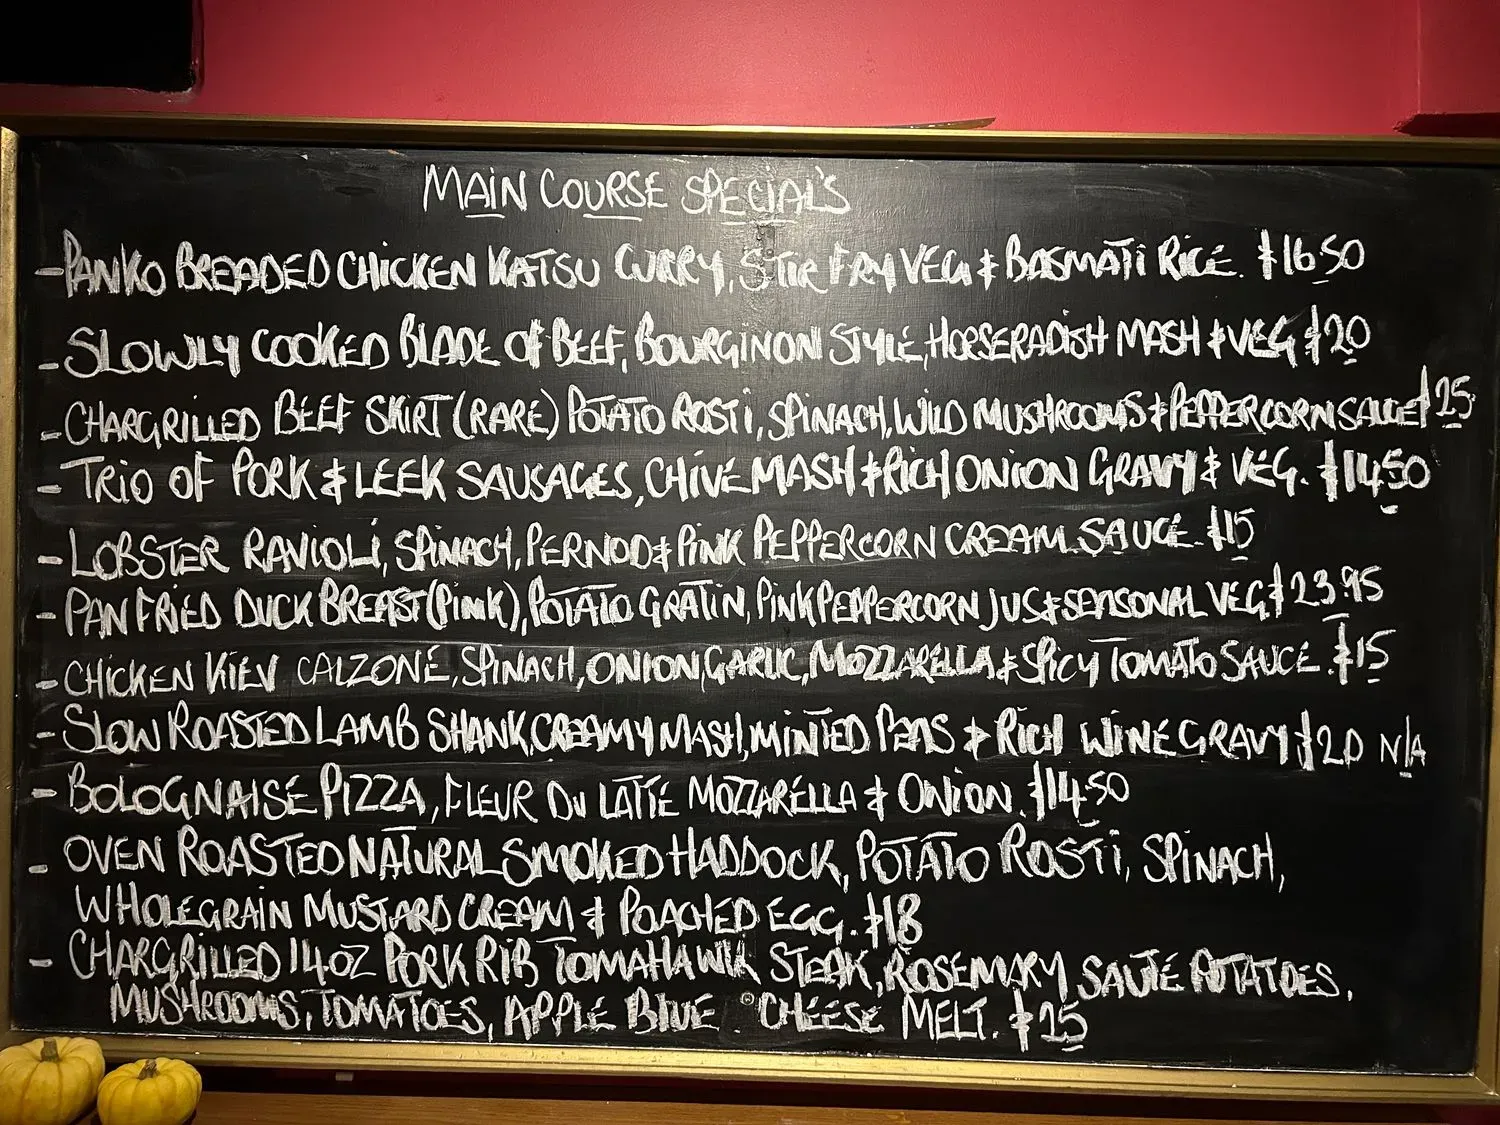 MAIN COURSE SPECIAL'S
- PANKO BREADED CHICKEN KATSU CURRY, STIR FRY VEG & BASMATI RICE. £16.50
- SLOWLY COOKED BLADE OF BEEF, BOURGINON STYLE, HORSERADISH MASH & VEG £20
- CHARGRILLED BEEF SKIRT (RARE) POTATO ROSTI, SPINACH, WILD MUSHROOMS & PEPPERCORN SAUCE £25
- TRIO OF PORK & LEEK SAUSAGES, CHIVE MASH & RICH ONION GRAVY & VEG. £14.50
- LOBSTER RAVIOLI, SPINACH, PERNOD & PINK PEPPERCORN CREAM SAUCE. £15
- PAN FRIED DUCK BREAST (PINK), POTATO GRATIN, PINK PEPPERCORN JUS & SEASONAL VEG £23.95
- CHICKEN KIEV CALZONE, SPINACH, ONION, GARLIC, MOZZARELLA & SPICY TOMATO SAUCE. £15
- SLOW ROASTED LAMB SHANK, CREAMY MASH, MINTED PEAS & RICH WINE GRAVY £20 N/A
- BOLOGNAISE PIZZA, FLEUR DU LATTE MOZZARELLA & ONION. £14.50
- OVEN ROASTED NATURAL SMOKED HADDOCK, POTATO ROSTI, SPINACH,
WHOLEGRAIN MUSTARD CREAM & POACHED EGG. £18
- CHARGRILLED 14OZ PORK RIB TOMAHAWK STEAK, ROSEMARY SAUTÉ POTATOES,
MUSHROOMS, TOMATOES, APPLE BLUE CHEESE MELT. £25